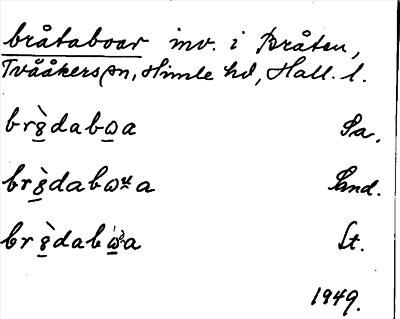 bråtaboar inv. i Bråten,
Tvååkers sn, Himle hd, Hall. l.
brὸ̲dabω̲a Sa.
brὸ̲dabωᵘa Sand.
brὸ̲dabώ̲a St.
1949.